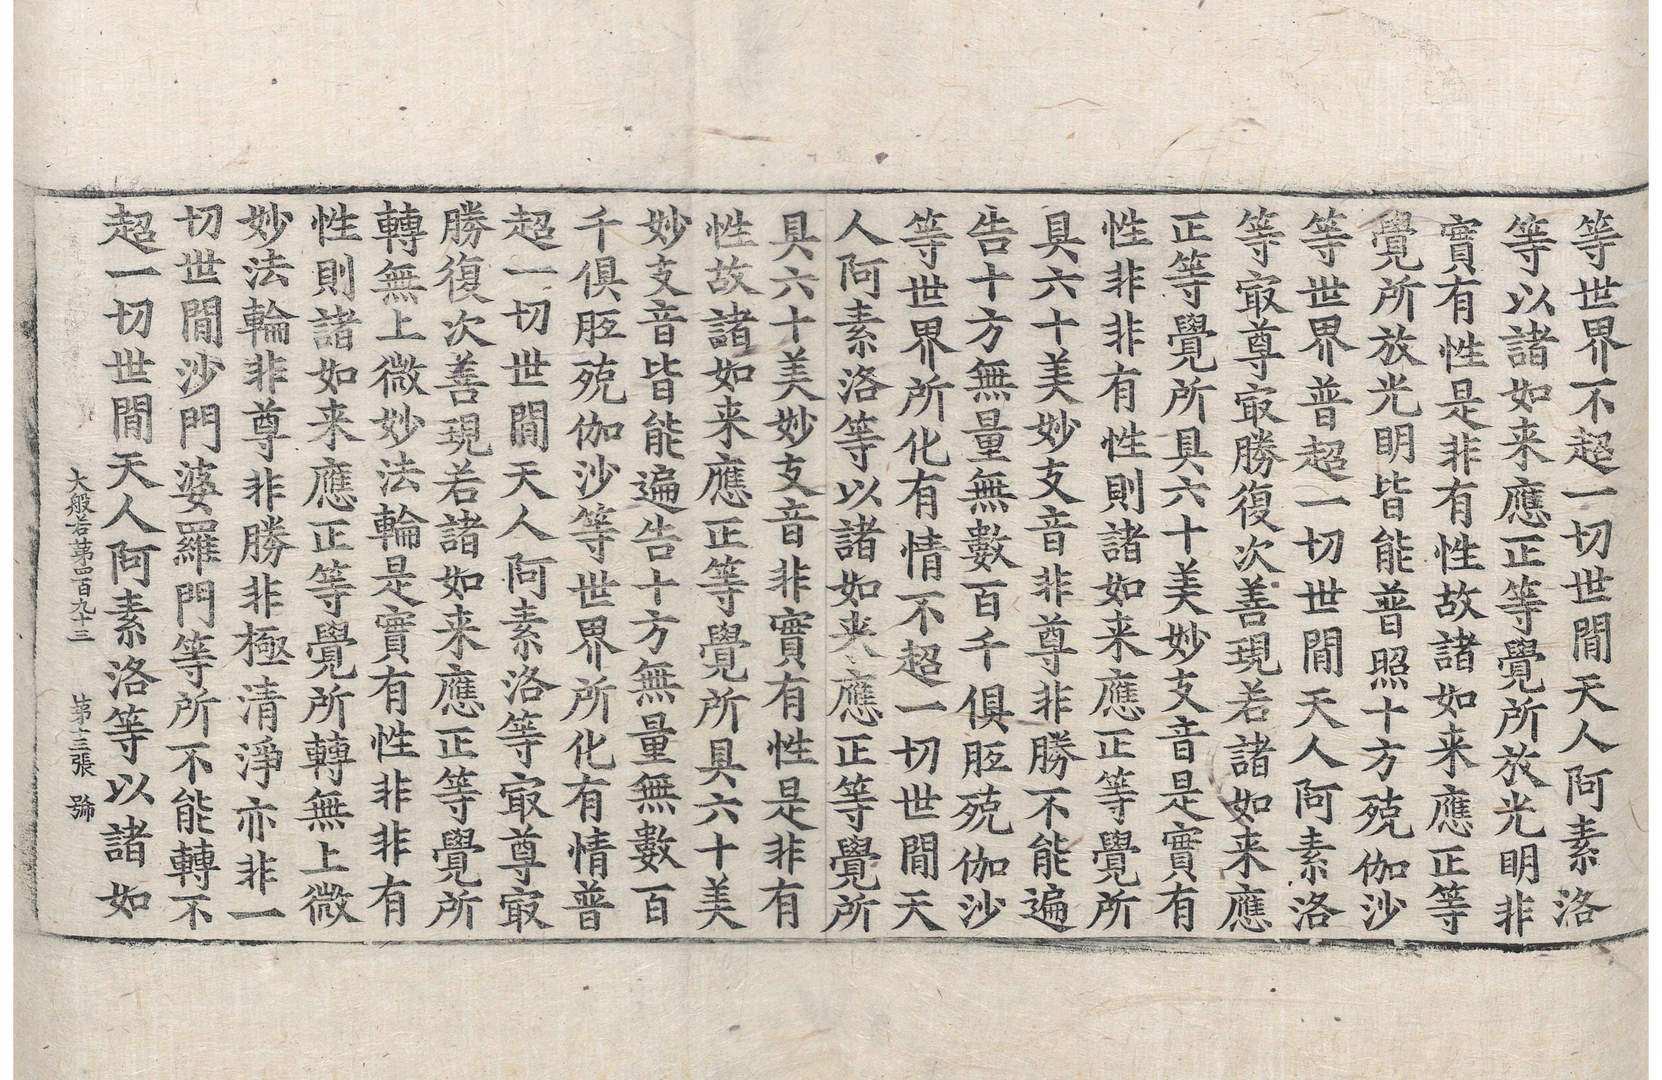 等世界不超一切世間天人阿素洛
等以諸如来應正等覺所放光明非
實有性是非有性故諸如来應正等
覺所放光明皆能普照十方殑伽沙
等世界普超一切世間天人阿素洛
等㝡尊㝡勝復次善現若諸如来應
正等覺所具六十美妙支音是實有
性非非有性則諸如来應正等覺所
具六十美妙支音非尊非勝不能遍
告十方無量無數百千俱胝殑伽沙
等世界所化有情不超一切世間天
人阿素洛等以諸如来應正等覺所
具六十美妙支音非實有性是非有
性故諸如来應正等覺所具六十美
妙支音皆能遍告十方無量無數百
千俱胝殑伽沙等世界所化有情普
超一切世間天人阿素洛等㝡尊㝡
勝復次善現若諸如来應正等覺所
轉無上微妙法輪是實有性非非有
性則諸如来應正等覺所轉無上微
妙法輪非尊非勝非極清淨亦非一
切世間沙門婆羅門等所不能轉不
超一切世間天人阿素洛等以諸如
大般若第四百九十三 第十三張 號